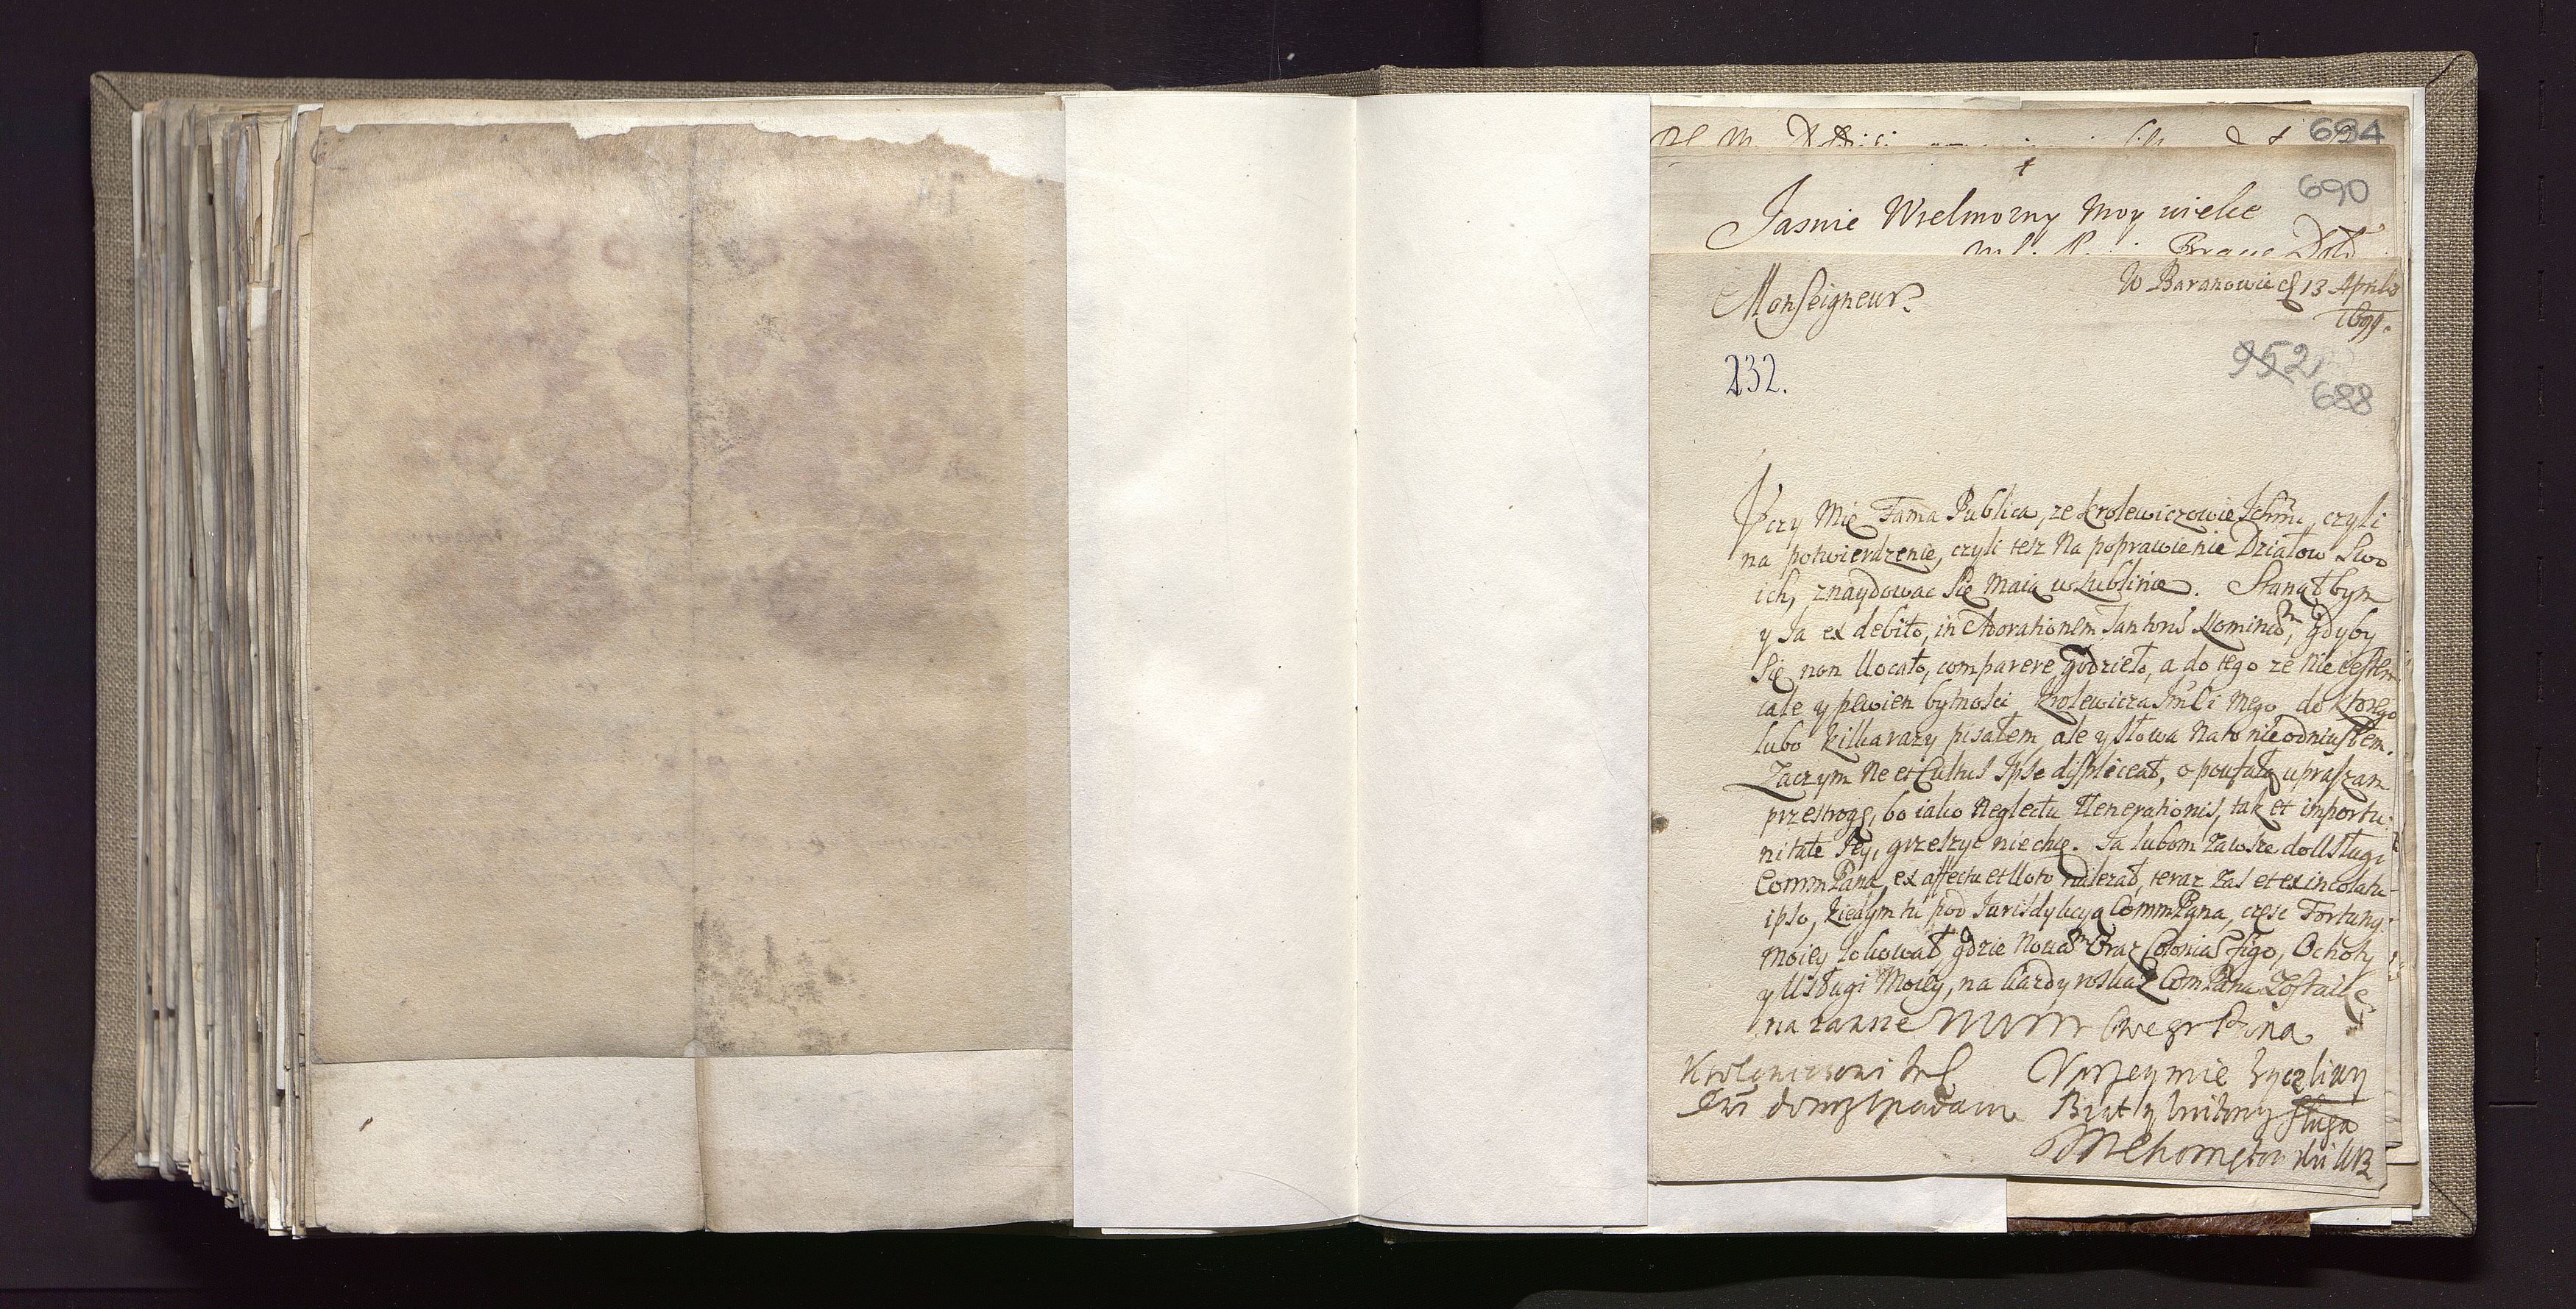 694
690
Jasnie Wielmozny Moy wielce
W Baranowie 13 Aprilis
1699.
Monseigneur
232.
952
688
Uczy Mię Fama Publica, ze Krolewiczowie Ichmc, czyli
na potwierdzenie, czyli tesz Na poprawienie Działow Swo
ich, znaydowac Się Maią w Lublinie. Stanąłbym
y Ja ex debito, in Adorationem Dominor, gdyby
Się non Uocato, comparere godzieło, a do tego ze Nie iestem
cale y pewien bytnosci Krolewicza Jmci Mego do ktorego
lubo kilka razy pisałem, ale y słowa Na to nieodniusłem.
Zaczym Ne et Cultus Ipse displiceat, o poufałą upraszam
przestrogę, bo iako Neglectu Uenerationis, tak et importu:
nitate Jey, grzeszyc niechcę. Ja lubom Zawsze do Usługi
WmmPana, ex affectu et Uoto nalezał, teraz Zas et ex incolatu
ipso, kiedym tu pod Jurisdykcyą WmmPana, częsc Fortuny
moiey lokował, gdzie Nouam Oraz Coloniam figo, Ochoty
y Usługi Moiey, na kazdy roskaz WmPana Zostaię
na zawsze
Uprzeymie Zyczliwy
Brat y sługa